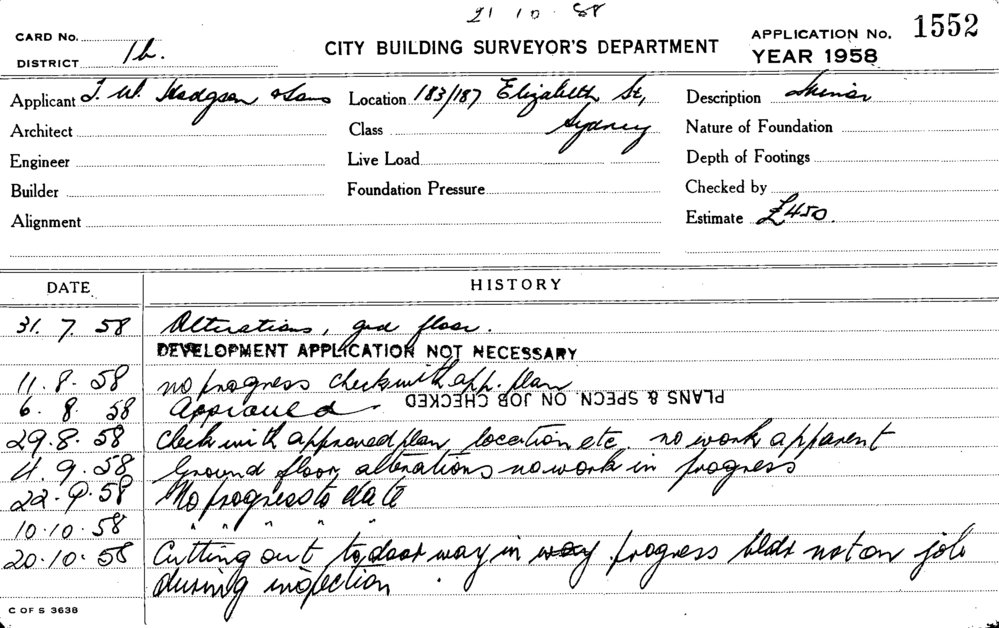 21 10 58
CARD No.
DISTRICT 1b.
CITY BUILDING SURVEYOR'S DEPARTMENT
APPLICATION No. 1552
YEAR 1958
Applicant T. W. Hodgson & Sons
Location 183/187 Elizabeth St,
Sydney
Description Minor
Architect
Class
Nature of Foundation
Engineer
Live Load
Depth of Footings
Builder
Foundation Pressure
Checked by
Alignment
Estimate £450.
DATE HISTORY
31. 7. 58 Alterations, grd floor.
DEVELOPMENT APPLICATION NOT NECESSARY
11. 8. 58 no progress check with app. plan
PLANS & SPECN. ON JOB CHECKED
6. 8. 58 Approved.
29.8.58 Check with approved plan, location etc. no work apparent
4. 9. 58 Ground floor, alterations no work in progress
22.9.58 No progress to date
10.10.58 " " " " "
20.10.58 Cutting out to door way in progress bldr not on job
during inspection
C OF S 3638